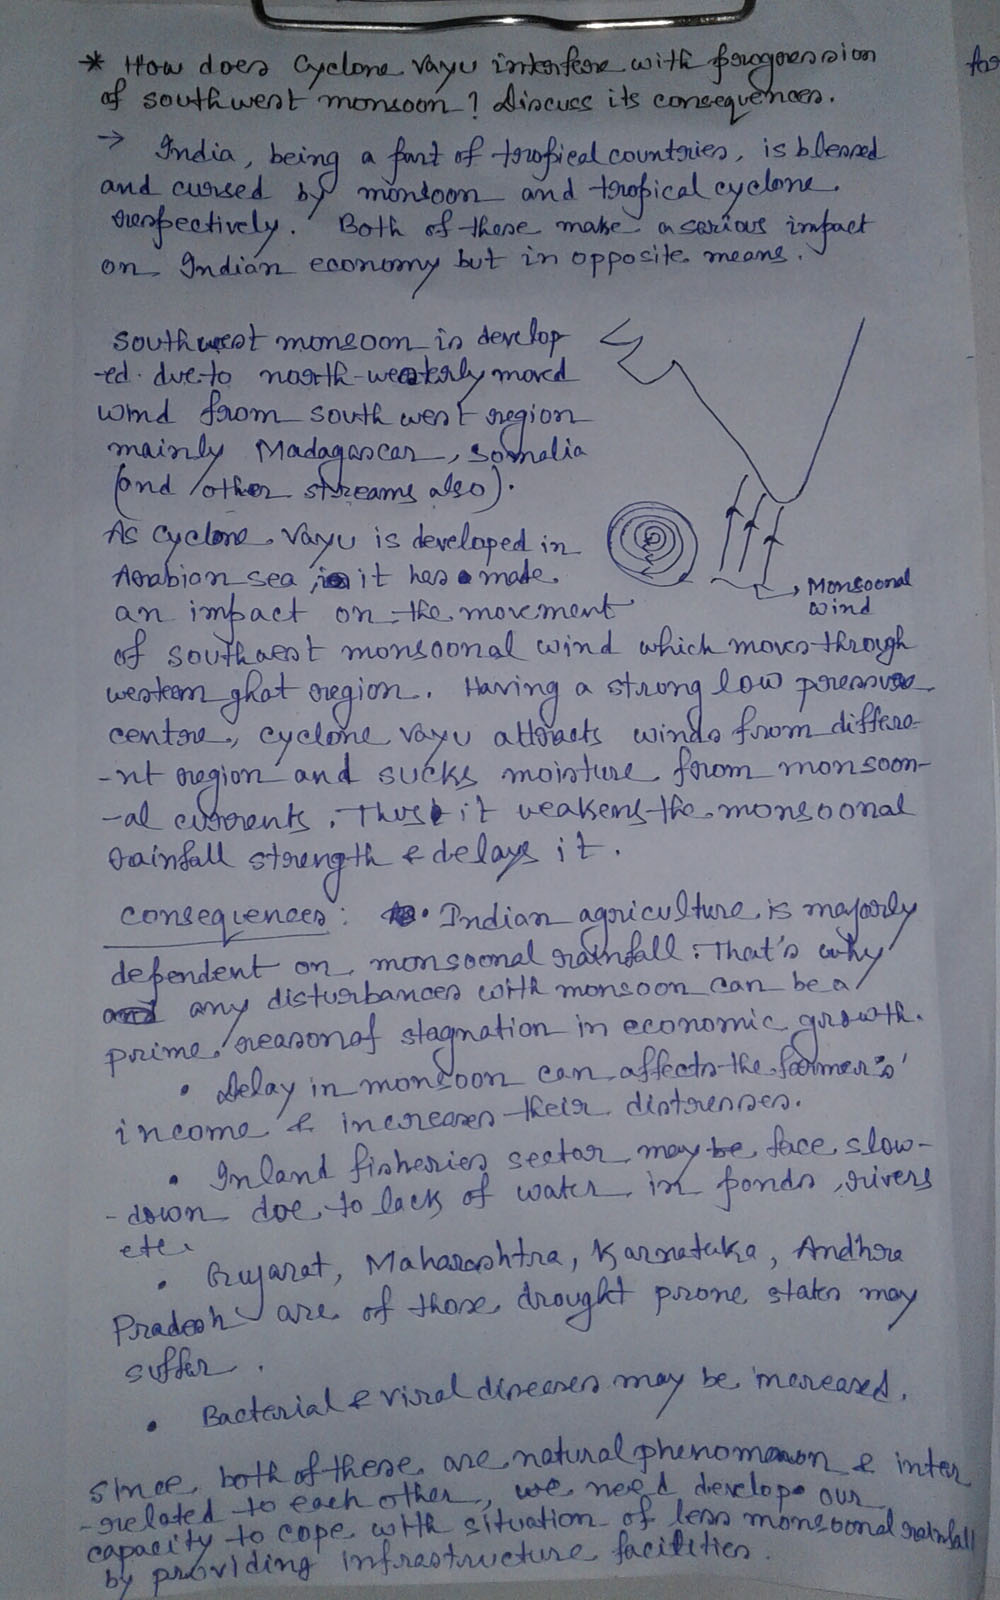 * How does Cyclone Vayu interfere with progression
of southwest monsoon? Discuss its consequences.
→ India, being a part of tropical countries, is blessed
and cursed by monsoon and tropical cyclone
respectively. Both of these make a serious impact
on Indian economy but in opposite means.
Southwest monsoon is develop
-ed due to north-westerly moved
wind from south west region
mainly Madagascar, Somalia
(and other streams also).
As cyclone Vayu is developed in
Arabian sea, it has made
an impact on the movement
Monsoonal
wind
of southwest monsoonal wind which moves through
western ghat region. Having a strong low pressure
centre, cyclone Vayu attracts winds from differe-
-nt region and sucks moisture from monsoon-
-al currents. Thus it weakens the monsoonal
rainfall strength & delays it.
Consequences: • Indian agriculture is majorly
dependent on monsoonal rainfall. That's why
any disturbances with monsoon can be a
prime reason of stagnation in economic growth.
• Delay in monsoon can affects the farmer's'
income & increases their distresses.
• Inland fisheries sector may be face slow-
-down doe to lack of water in ponds, rivers
etc.
• Gujarat, Maharashtra, Karnataka, Andhra
Pradesh are of those drought prone states may
suffer.
• Bacterial & viral diseases may be increased.
Since both of these are natural phenomenon & inter
-related to each other, we need develop our
capacity to cope with situation of less monsoonal rainfall
by providing infrastructure facilities.